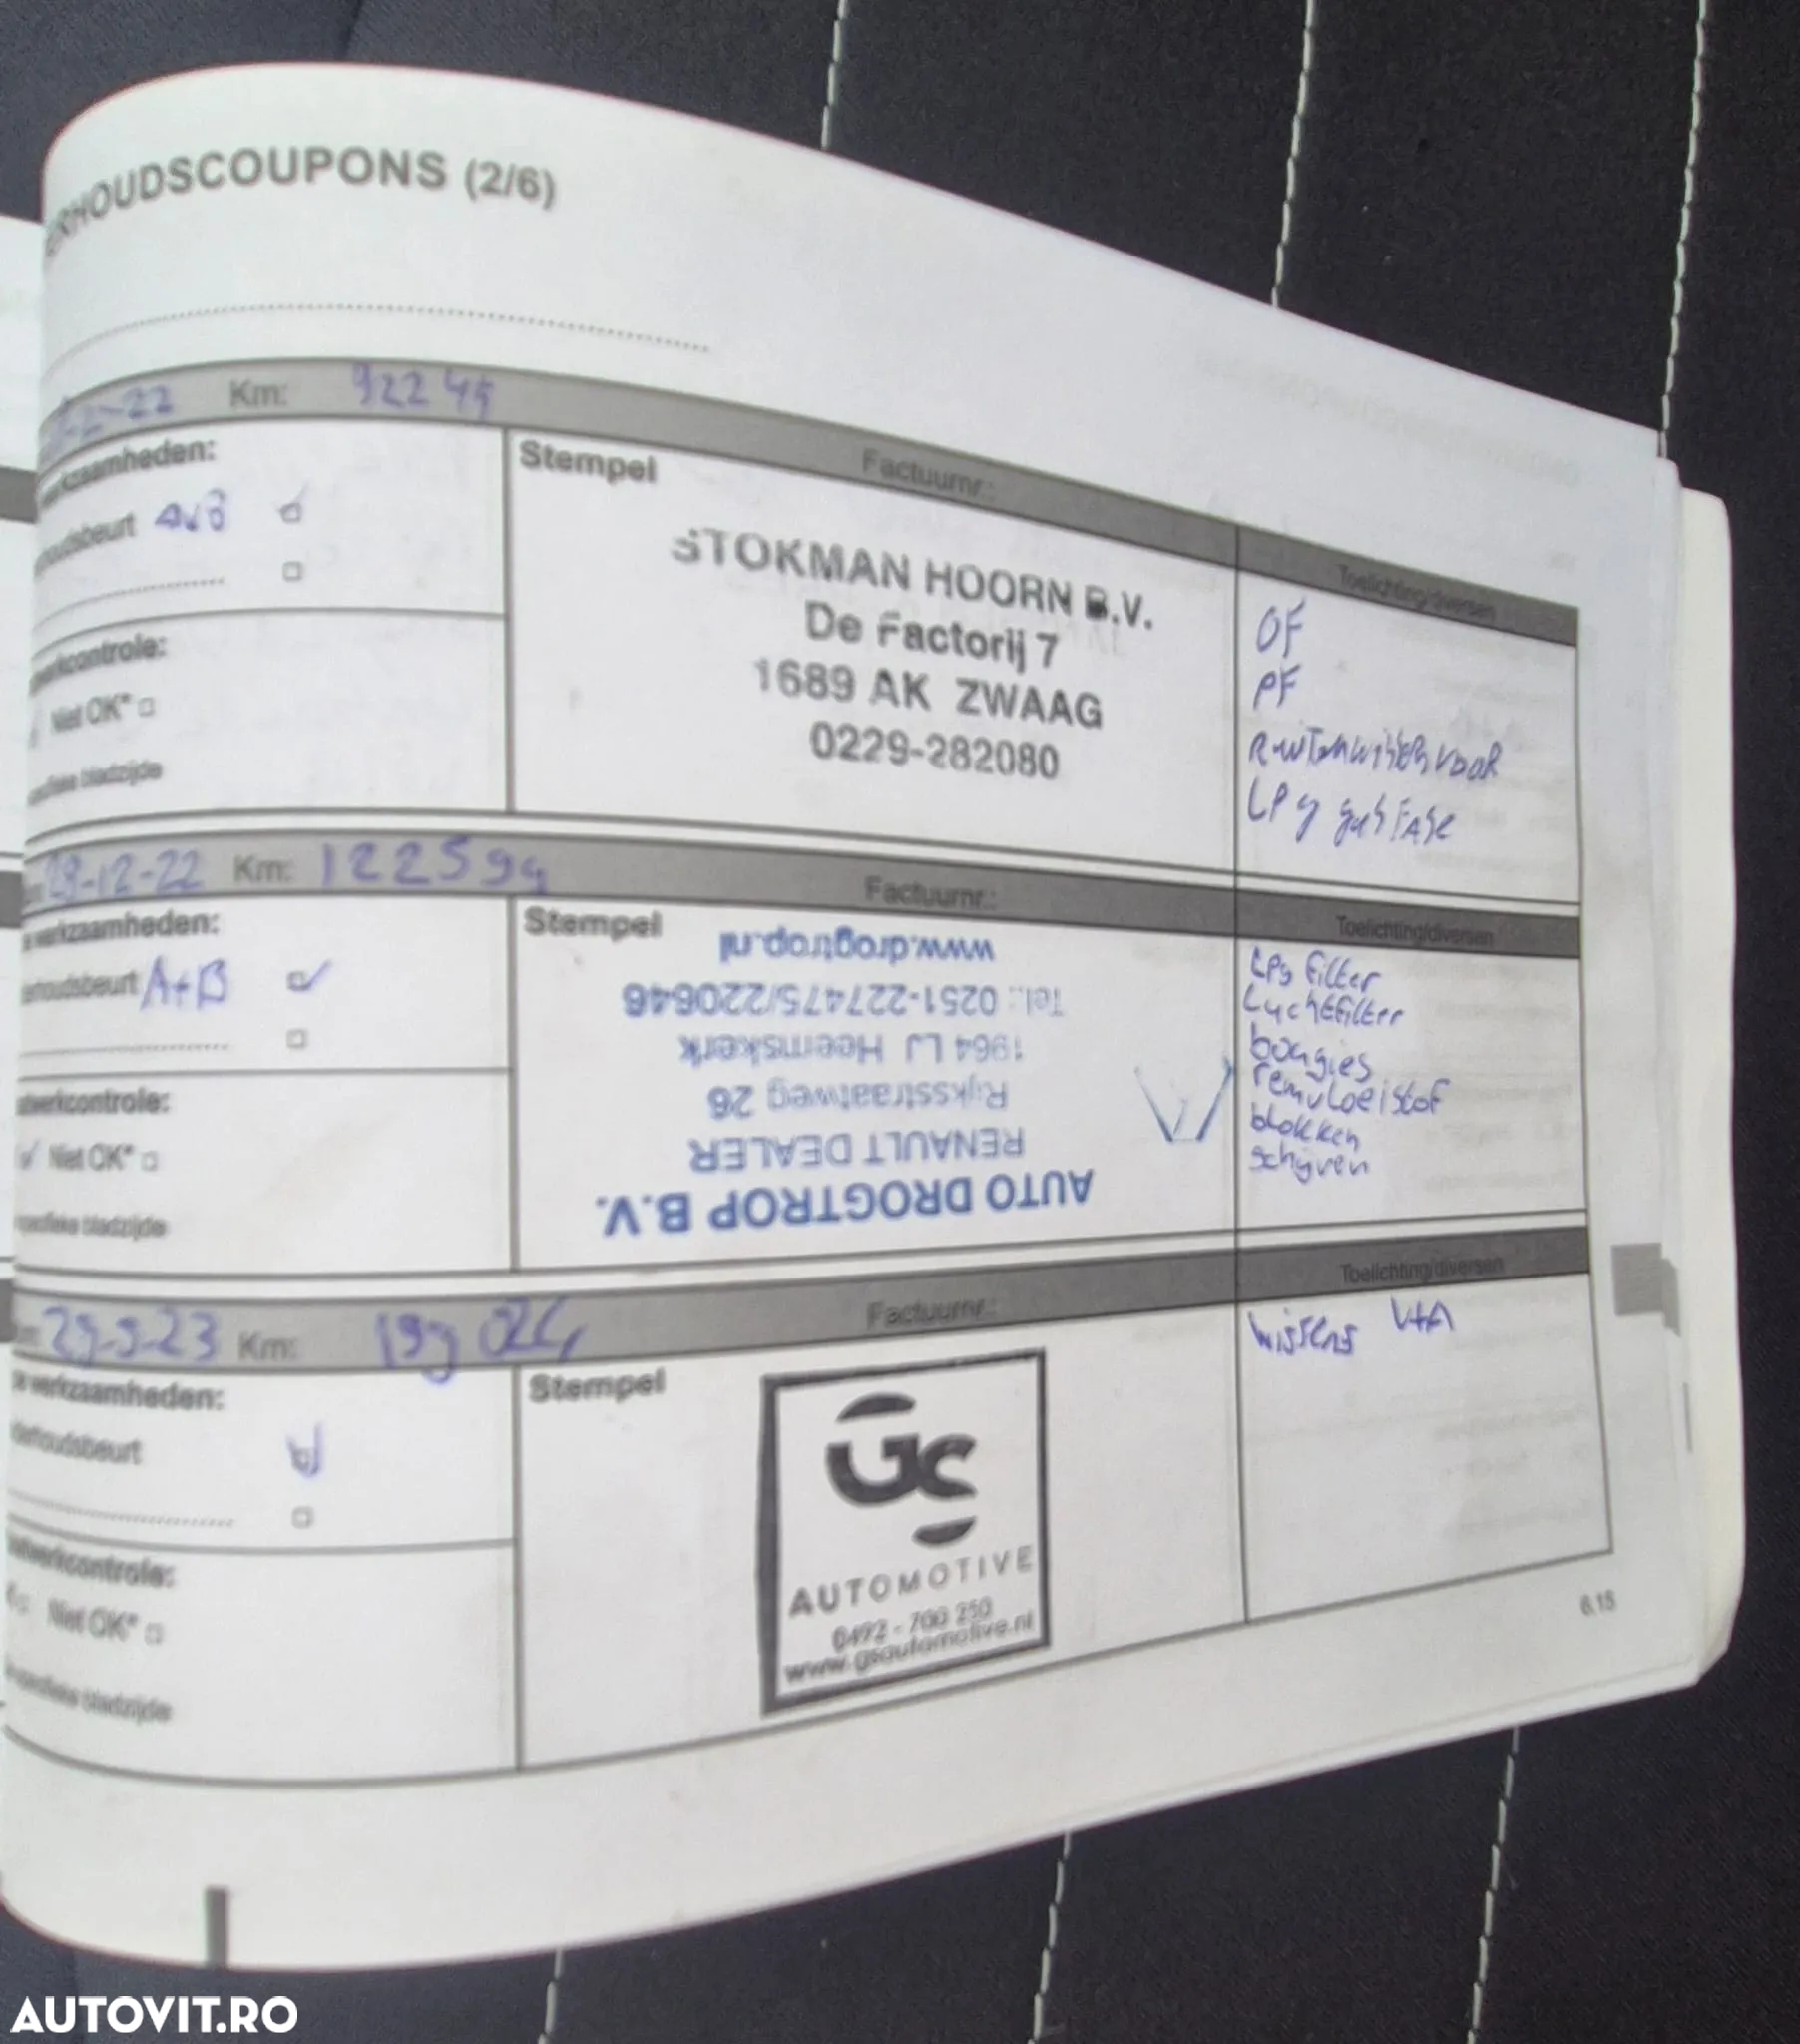 ERHOUDSCOUPONS (2/6)
-2-22 Km: 92244
werkzaamheden:
Stempel
Factuurnr.:
Toelichting/diversen
houdsbeurt
STOKMAN HOORN B.V.
De Factorij 7
1689 AK ZWAAG
0229-282080
OF
PF
LPg
werkcontrole:
Niet OK*
specifieke bladzijde
29-12-22 Km: 122594
werkzaamheden:
Stempel
Factuurnr.:
Toelichting/diversen
erhoudsbeurt A+B
AUTO DROGTROP B.V.
RENAULT DEALER
Rijksstraatweg 26
1964 LJ Heemskerk
Tel.: 0251-227475/220646
www.drogtrop.nl
LPg filter
Luchtfilter
bougies
remvloeistof
blokken
schijven
werkcontrole:
Niet OK*
specifieke bladzijde
29-9-23 Km:
werkzaamheden:
Stempel
Factuurnr.:
Toelichting/diversen
erhoudsbeurt
GS
AUTOMOTIVE
0492 - 700 250
www.gsautomotive.nl
wissers V+A
werkcontrole:
Niet OK*
specifieke bladzijde
6.15
AUTOVIT.RO